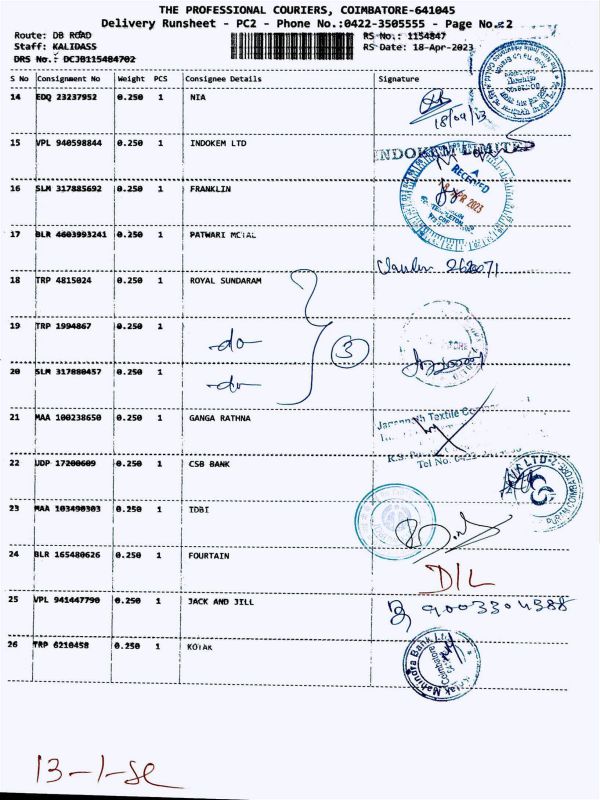 THE PROFESSIONAL COURIERS, COIMBATORE-641045
Delivery Runsheet - PC2 - Phone No.:0422-3505555 - Page No.:2
Route: DB ROAD RS No.: 1154847
Staff: KALIDASS RS Date: 18-Apr-2023
DRS No.: DCJB115484702
S No Consignment No Weight PCS Consignee Details Signature
14 EDQ 23237952 0.250 1 NIA
18/04/23
15 VPL 940598844 0.250 1 INDOKEM LTD INDOKEM LIMITED
16 SLM 317885692 0.250 1 FRANKLIN
RECEIVED
18 APR 2023
17 BLR 4603993241 0.250 1 PATWARI METAL
18 TRP 4815024 0.250 1 ROYAL SUNDARAM
19 TRP 1994867 0.250 1 -do-
3
20 SLM 317880457 0.250 1 -do-
21 MAA 100238650 0.250 1 GANGA RATHNA
Textile
Tel No.
22 UDP 17200609 0.250 1 CSB BANK
23 MAA 103490303 0.250 1 IDBI
24 BLR 165480626 0.250 1 FOUNTAIN D/L
25 VPL 941447790 0.250 1 JACK AND JILL 9003304388
26 TRP 6210458 0.250 1 KOTAK
Kotak Mahindra Bank Ltd
Coimbatore
13-1-SL